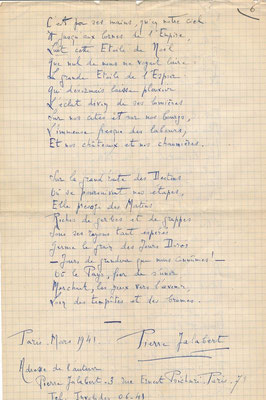 6
C'est par ses mains, qu'en notre ciel
Et jusqu'aux bornes de l'Empire,
Luit cette Etoile de Noël
Que nul de nous ne voyait luire.
La grande Etoile de l'Espoir
Qui désormais laisse pleuvoir
L'éclat divin de ses lumières
Sur nos cités et sur nos bourgs,
L'immense fresque des labours,
Et nos châteaux et nos chaumières.
Sur la grand'route des Destins
Où se poursuivent nos étapes,
Elle présage des Matins
Riches de gerbes et de grappes
Sous ses rayons tant espérés
Germe le grain des Jours Dorés
— Jours de grandeur que nous connûmes ! —
Où le Pays, fier de s'unir
Marchait, les yeux vers l'avenir,
Loin des tempêtes et des brumes.
Paris. Mars 1941.
Pierre Jalabert
Adresse de l'auteur
Pierre Jalabert. 3 rue Ernest Psichari. Paris. 7e
Tel. 06.48